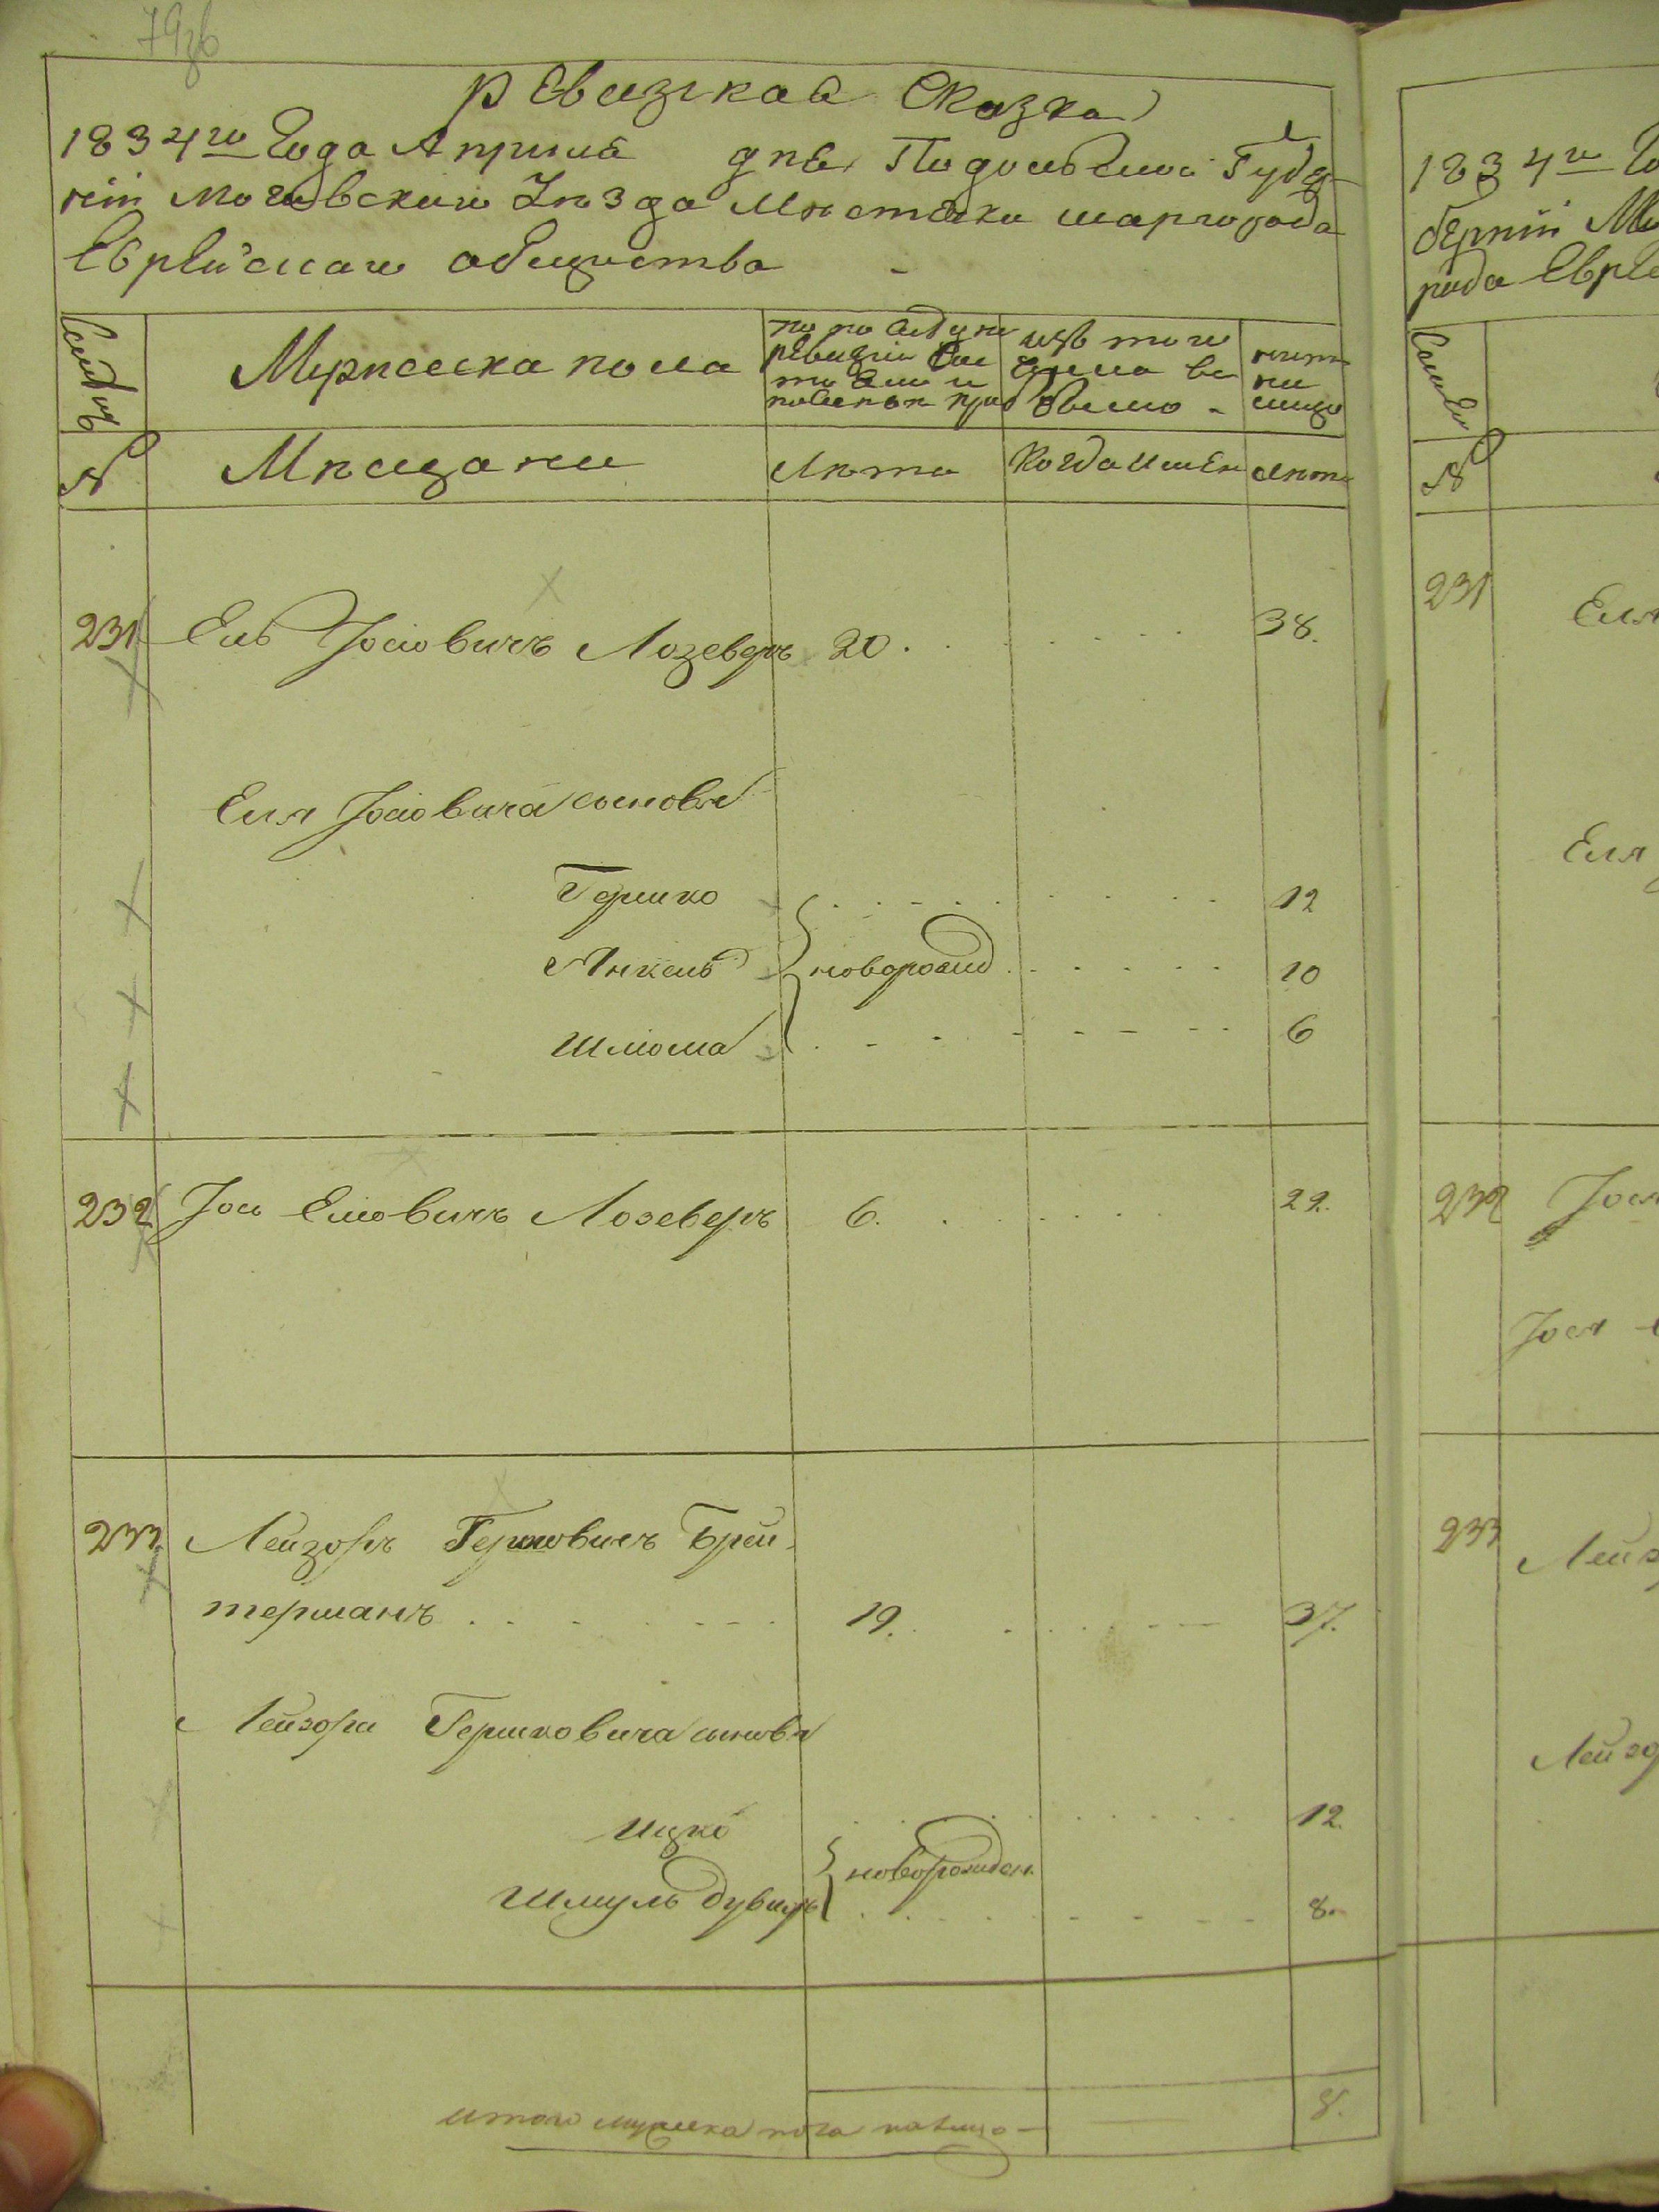 79зб
Ревизская Сказка
1834го Года Апреля дня Подольской Губер
нiи Могилевского Уѣзда Мѣстечка Шаргорода
Еврейскаго общества
Семейств
Мужеска пола
по последней ревизiи состояло и после прибыло
изъ того числа выбыло
ныне на лицо
№
Мѣщане
Лѣта
Когда имен
лѣта
231
Ель Iосiовичъ Лозеверъ 20. 38.
Еля Iосiовича сыновья
Гершко 12
Янкель новорожд 10
Шлiома 6
232 Iось Елiовичъ Лозеверъ 6. 22.
233. Лейзоръ Гершковичъ Брей
терманъ 19. 37.
Лейзора Гершковича сыновья
Ицко 12.
новорожден.
Шмуль Дувидъ 8.
итого мужеска пола налицо 8.
1834го Го
бернiи Мо
рода Евре
№
231
Еля
Еля
232
Iося
Iося
233
Лейз
Лейзо